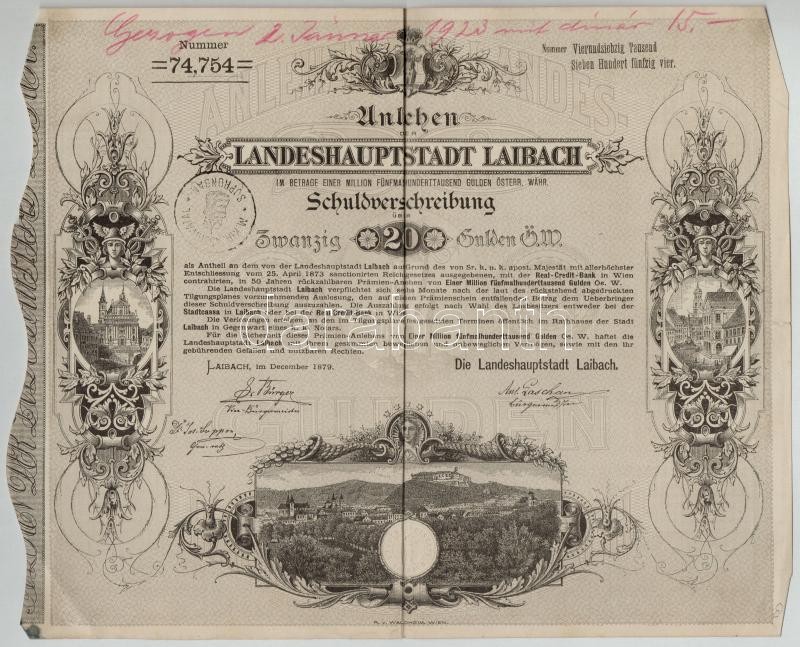 Gezogen 2. Jänner 1923 mit dinár 15.–
Nummer
=74,754=
Nummer Viernudsiebzig Tausend
Sieben Hundert fünfzig vier.
Anlehen
DER
LANDESHAUPTSTADT LAIBACH
IM BETRAGE EINER MILLION FÜNFMALHUNDERTTAUSEND GULDEN ÖSTERR. WÄHR.
Schuldverschreibung
über
Zwanzig 20 Gulden Ö.W.
als Antheil an dem von der Landeshauptstadt Laibach auf Grund des von Sr. k. u. k. apost. Majestät mit allerhöchster
Entschliessung vom 25. April 1873 sanctionirten Reichsgesetzes ausgegebenen, mit der Real-Credit-Bank in Wien
contrahirten, in 50 Jahren rückzahlbaren Prämien-Anlehen von Einer Million fünfmalhunderttausend Gulden Oe. W.
Die Landeshauptstadt Laibach verpflichtet sich sechs Monate nach der laut des rückstehend abgedruckten
Tilgungsplanes vorzunehmenden Auslosung, den auf diesen Prämienschein entfallenden Betrag dem Ueberbringer
dieser Schuldverschreibung auszuzahlen. Die Auszahlung erfolgt nach Wahl des Inhabers entweder bei der
Stadtcassa in Laibach oder bei der Real-Credit-Bank in Wien.
Die Verlosungen erfolgen an den im Tilgungsplan festgesetzten Terminen öffentlich im Rathhause der Stadt
Laibach in Gegenwart eines k. k. Notars.
Für die Sicherheit dieses Prämien-Anlehens von Einer Million fünfmalhunderttausend Gulden Oe. W. haftet die
Landeshauptstadt Laibach mit ihrem gesammten beweglichen und unbeweglichen Vermögen, sowie mit den ihr
gebührenden Gefällen und nutzbaren Rechten.
LAIBACH, im December 1879.
Die Landeshauptstadt Laibach.
Vice-Bürgermeister
Ant. Laschan
Bürgermeister
darabanth
R. v. WALDHEIM, WIEN.